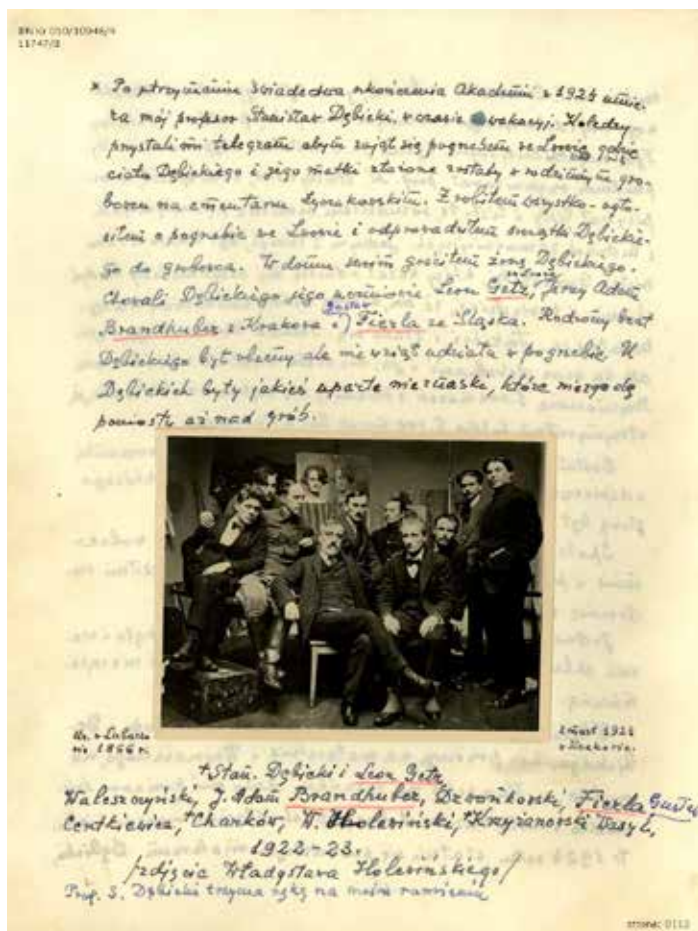 11747/2
x Po otrzymaniu świadectwa ukończenia Akademii z 1924 umie-
ra mój profesor Stanisław Dębicki, w czasie wakacyj. Koledzy
przysłali mi telegram abym zajął się pogrzebem we Lwowie gdzie
ciało Dębickiego i jego matki złożone zostały w rodzinnym gro-
bowcu na cmentarzu Łyczakowskim. Zrobiłem wszystko - ogło-
siłem o pogrzebie we Lwowie i odprowadziłem zwłoki Dębickie-
go do grobowca. W domu swoim gościłem żonę Dębickiego.
Chowali Dębickiego jego uczniowie Leon Getz, Jerzy Adam
Brandhuber z Krakowa i Gustaw Fierla ze Śląska. Rodzony brat
Dębickiego był obecny ale nie wziął udziału w pogrzebie. U
Dębickich były jakieś uparte nieznaski, które niezgodę
poniosły aż nad grób.
Ur. w Lubaczo
wie 1866 r.
zmarł 1924
w Krakowie.
+Stan. Dębicki i Leon Getz
Waleszczyński, J. Adam Brandhuber, Dzwonkowski, Fierla Gustaw
Centkiewicz, +Charków, W. Holesiński, +Krzyżanowski Wasyl,
1922-23.
/zdjęcia Władysława Holesinskiego/
Prof. S. Dębicki trzyma rękę na moim ramieniu
stronic: 0112